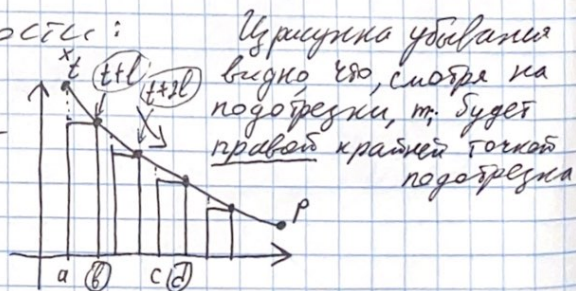 ости:
Из рисунка убывания
видно, что, смотря на
подотрезки, mᵢ будет
правой крайней точкой
подотрезка
x
t
t+l
t+2l
p
a b c d